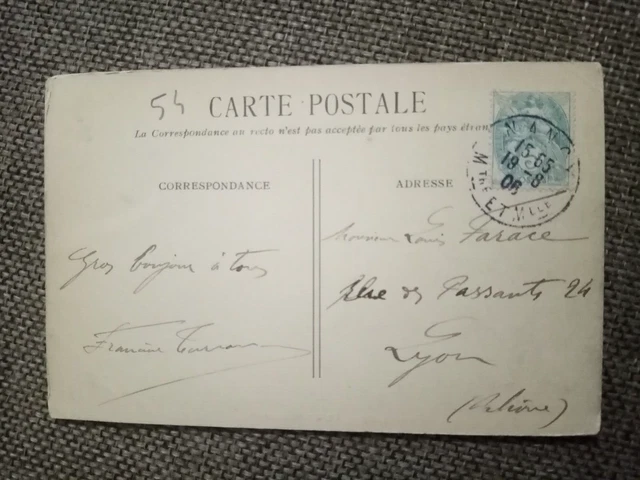 54
CARTE POSTALE
La Correspondance au recto n'est pas acceptée par tous les pays étran
NANCY
15-65
19-8
06
MTHE ET MLLE
CORRESPONDANCE
ADRESSE
Gros bonjour à tous
Monsieur Louis Farace
des Passants 24
Lyon
(Rhône)